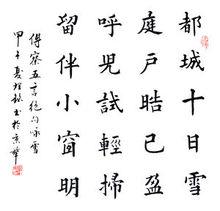 都城十日雪
庭戶皓已盈
呼兒試輕掃
留伴小窗明
傅察五言絕句咏雪
甲午夏
書於京華